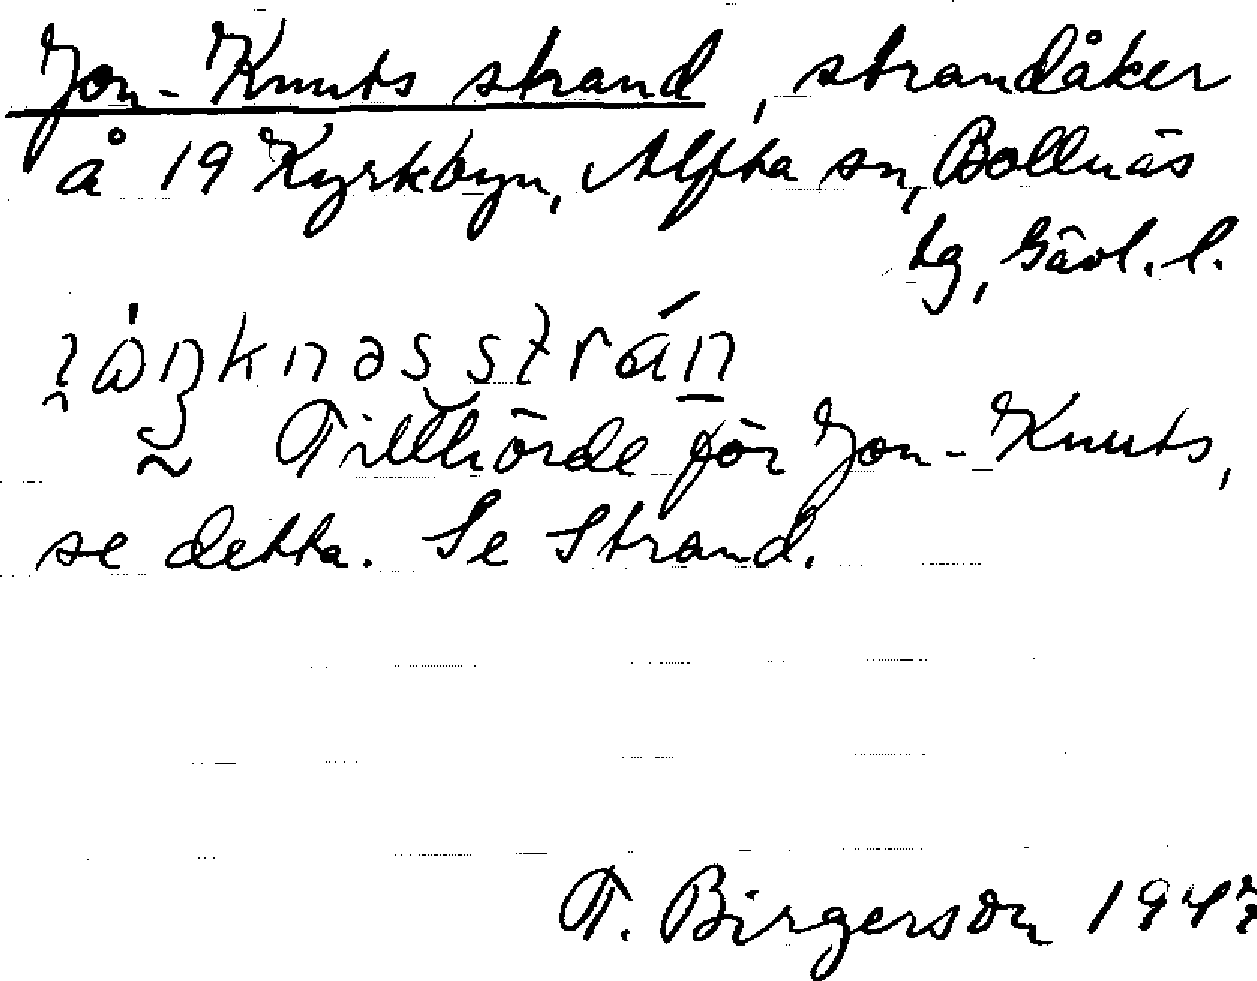 Jon-Knuts strand, strandåker
å 19 Kyrkbyn, Alfta sn, Bollnäs
tg, Gävl. l.
Tillhörde för Jon-Knuts,
se detta. Se Strand.
T. Birgerson 1947